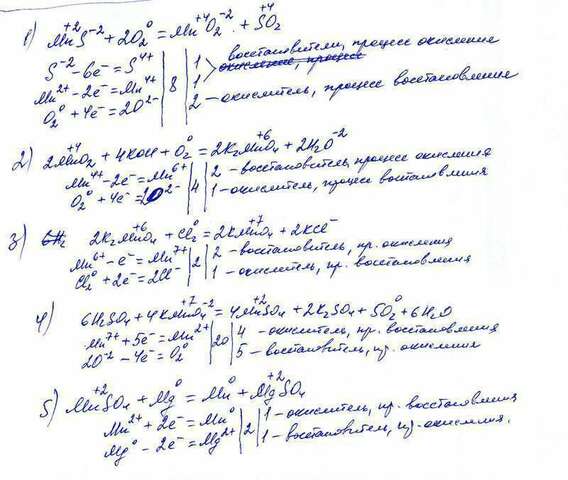 1) Mn⁺²S⁻² + 2O₂⁰ = Mn⁺⁴O₂⁻² + S⁺⁴O₂
восстановители, процесс окисления
S⁻² - 6e⁻ = S⁴⁺ | 8 | 1 > окисление, процесс
Mn²⁺ - 2e⁻ = Mn⁴⁺ | 1
O₂⁰ + 4e⁻ = 2O²⁻ | 2 - окислитель, процесс восстановления
2) 2Mn⁺⁴O₂ + 4KOH + O₂⁰ = 2K₂Mn⁺⁶O₄ + 2H₂O⁻²
Mn⁴⁺ - 2e⁻ = Mn⁶⁺ | 4 | 2 - восстановитель, процесс окисления
O₂⁰ + 4e⁻ = 2O²⁻ | 1 - окислитель, процесс восстановления
3) 2K₂Mn⁺⁶O₄ + Cl₂⁰ = 2KMn⁺⁷O₄ + 2KCl⁻
Mn⁶⁺ - e⁻ = Mn⁷⁺ | 2 | 2 - восстановитель, пр. окисления
Cl₂⁰ + 2e⁻ = 2Cl⁻ | 1 - окислитель, пр. восстановления
4) 6H₂SO₄ + 4KMn⁺⁷O₄⁻² = 4Mn⁺²SO₄ + 2K₂SO₄ + 5O₂⁰ + 6H₂O
Mn⁷⁺ + 5e⁻ = Mn²⁺ | 20 | 4 - окислитель, пр. восстановления
2O⁻² - 4e⁻ = O₂⁰ | 5 - восстановитель, пр. окисления
5) Mn⁺²SO₄ + Mg⁰ = Mn⁰ + Mg⁺²SO₄
Mn²⁺ + 2e⁻ = Mn⁰ | 2 | 1 - окислитель, пр. восстановления
Mg⁰ - 2e⁻ = Mg²⁺ | 1 - восстановитель, пр. окисления.